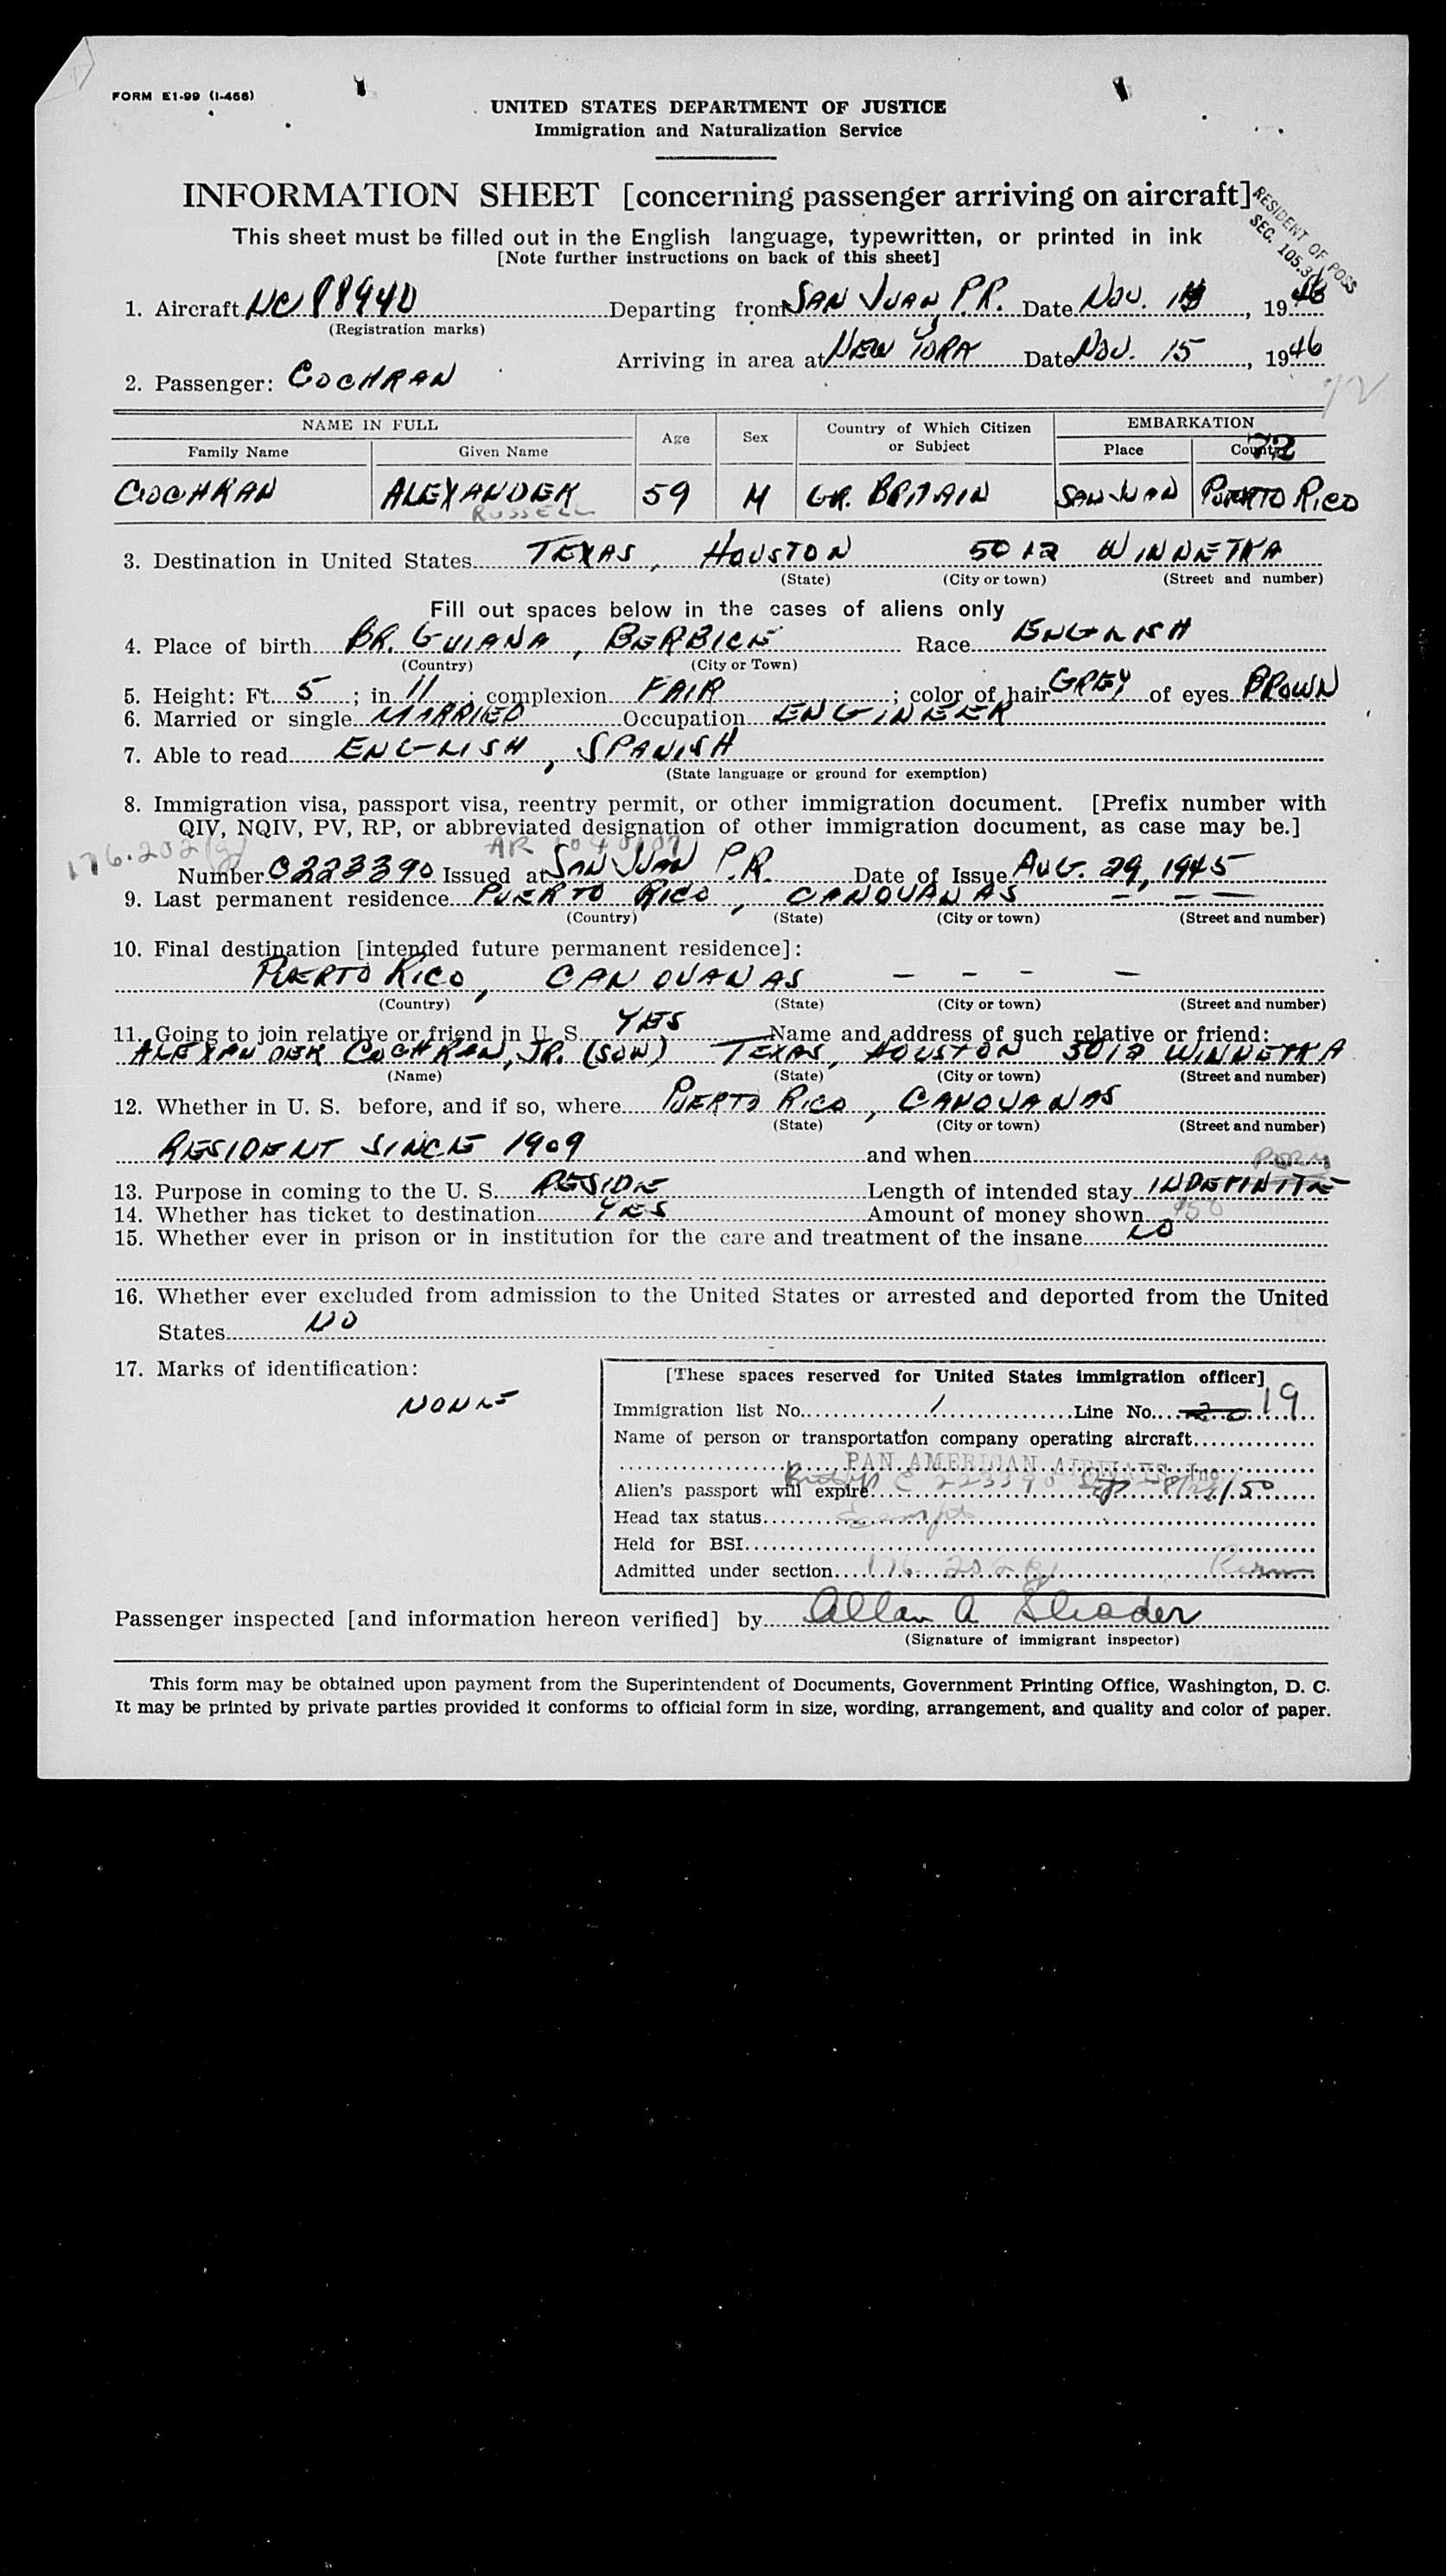 FORM E1-99 (I-466)
UNITED STATES DEPARTMENT OF JUSTICE
Immigration and Naturalization Service
INFORMATION SHEET [concerning passenger arriving on aircraft]
RESIDENT OF POSS
SEC. 105.3
This sheet must be filled out in the English language, typewritten, or printed in ink
[Note further instructions on back of this sheet]
1. Aircraft NC 88940 Departing from SAN JUAN, P.R. Date NOV. , 1946
(Registration marks)
Arriving in area at NEW YORK Date NOV. 15, 1946
2. Passenger: COCHRAN
72
NAME IN FULL Age Sex Country of Which Citizen or Subject EMBARKATION
Family Name Given Name Place Country 72
COCHRAN ALEXANDER 59 M GR. BRITAIN SAN JUAN PUERTO RICO
RUSSELL
3. Destination in United States TEXAS, HOUSTON 5012 WINNETKA
(State) (City or town) (Street and number)
Fill out spaces below in the cases of aliens only
4. Place of birth BR. GUIANA, BERBICE Race ENGLISH
(Country) (City or Town)
5. Height: Ft. 5; in 11; complexion FAIR; color of hair GREY of eyes BROWN
6. Married or single MARRIED Occupation ENGINEER
7. Able to read ENGLISH, SPANISH
(State language or ground for exemption)
8. Immigration visa, passport visa, reentry permit, or other immigration document. [Prefix number with
QIV, NQIV, PV, RP, or abbreviated designation of other immigration document, as case may be.]
176.202(g) AR
Number C223390 Issued at SAN JUAN P.R. Date of Issue AUG. 29, 1945
9. Last permanent residence PUERTO RICO, CANOVANAS - - -
(Country) (State) (City or town) (Street and number)
10. Final destination [intended future permanent residence]:
PUERTO RICO, CANOVANAS - - - -
(Country) (State) (City or town) (Street and number)
11. Going to join relative or friend in U. S. YES Name and address of such relative or friend:
ALEXANDER COCHRAN, JR. (SON) TEXAS, HOUSTON 5012 WINNETKA
(Name) (State) (City or town) (Street and number)
12. Whether in U. S. before, and if so, where PUERTO RICO, CANOVANAS
(State) (City or town) (Street and number)
RESIDENT SINCE 1909 and when
PERM
13. Purpose in coming to the U. S. RESIDE Length of intended stay INDEFINITE
14. Whether has ticket to destination YES Amount of money shown
15. Whether ever in prison or in institution for the care and treatment of the insane NO
16. Whether ever excluded from admission to the United States or arrested and deported from the United
States NO
17. Marks of identification:
NONE
[These spaces reserved for United States immigration officer]
Immigration list No. 1 Line No. 20 19
Name of person or transportation company operating aircraft
PAN AMERICAN AIRWAYS Inc
Alien's passport will expire C 223390
Head tax status Exempt
Held for BSI
Admitted under section 176.202(g) Perm
Passenger inspected [and information hereon verified] by Allan A
(Signature of immigrant inspector)
This form may be obtained upon payment from the Superintendent of Documents, Government Printing Office, Washington, D. C.
It may be printed by private parties provided it conforms to official form in size, wording, arrangement, and quality and color of paper.